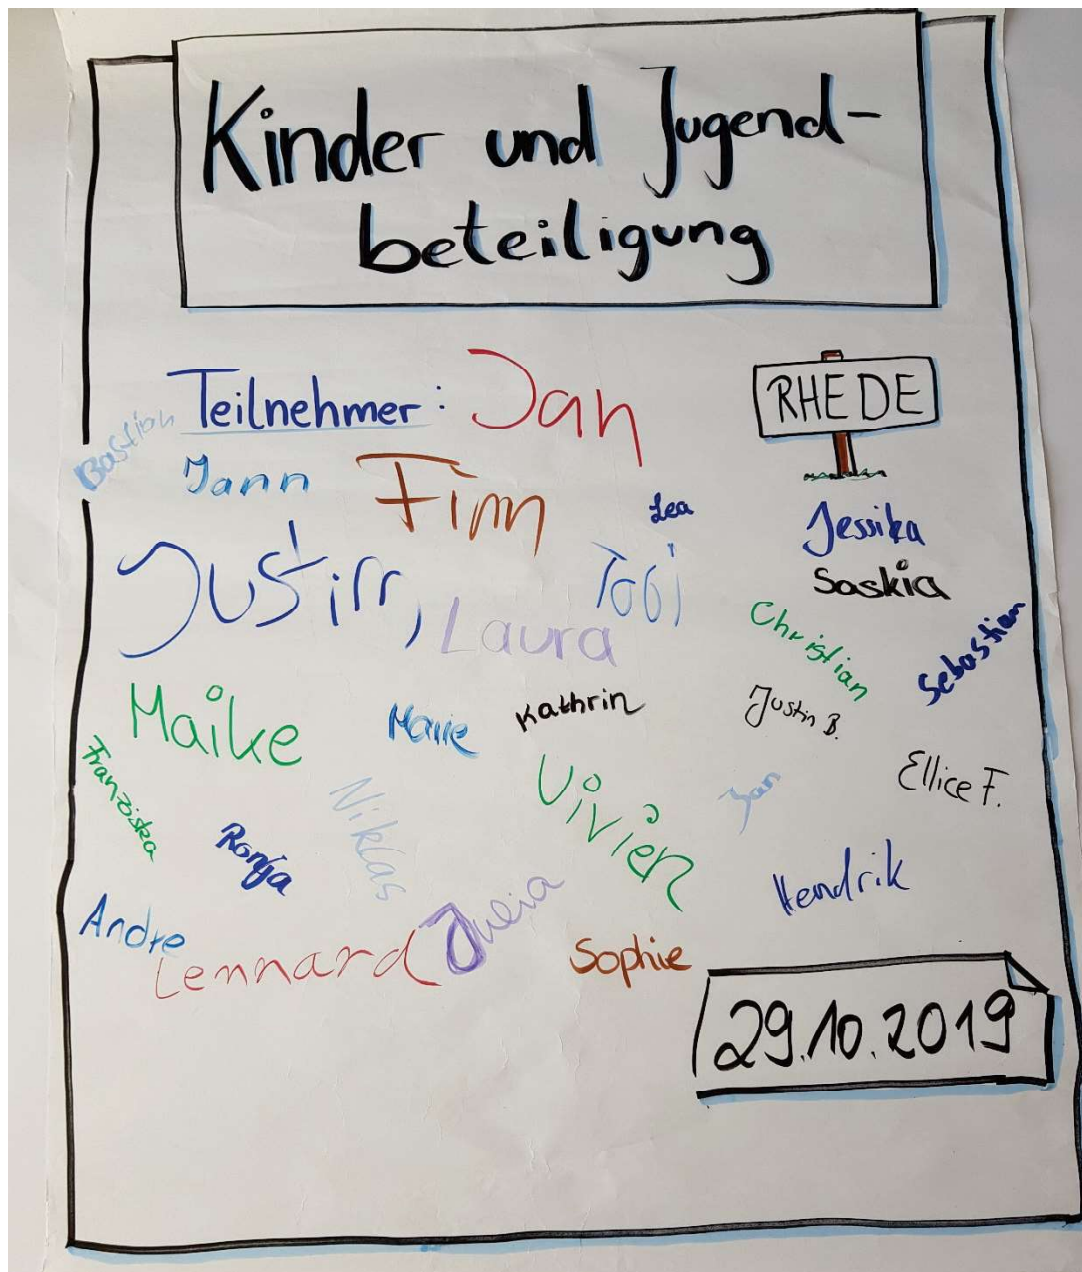 Kinder und Jugend-
beteiligung
Teilnehmer: Jan
RHEDE
Bastian
Jann
Finn
Lea
Jessika
Justin,
Tobi
Saskia
Laura
Christian
Sebastian
Maike
Marie
Kathrin
Justin B.
Franziska
Niklas
Vivien
Jan
Ellice F.
Ronja
Hendrik
Andre
Lennard
Julia
Sophie
29.10.2019